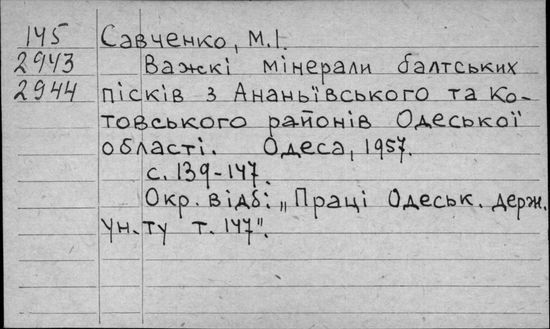 145 Савченко, М.І.
2943 Важкі мінерали балтських
2944 пісків з Ананьївського та Ко-
товського районів Одеської
області. Одеса, 1957.
с. 139-147.
Окр. відб: „Праці Одеськ. держ.
ун-ту т. 147".